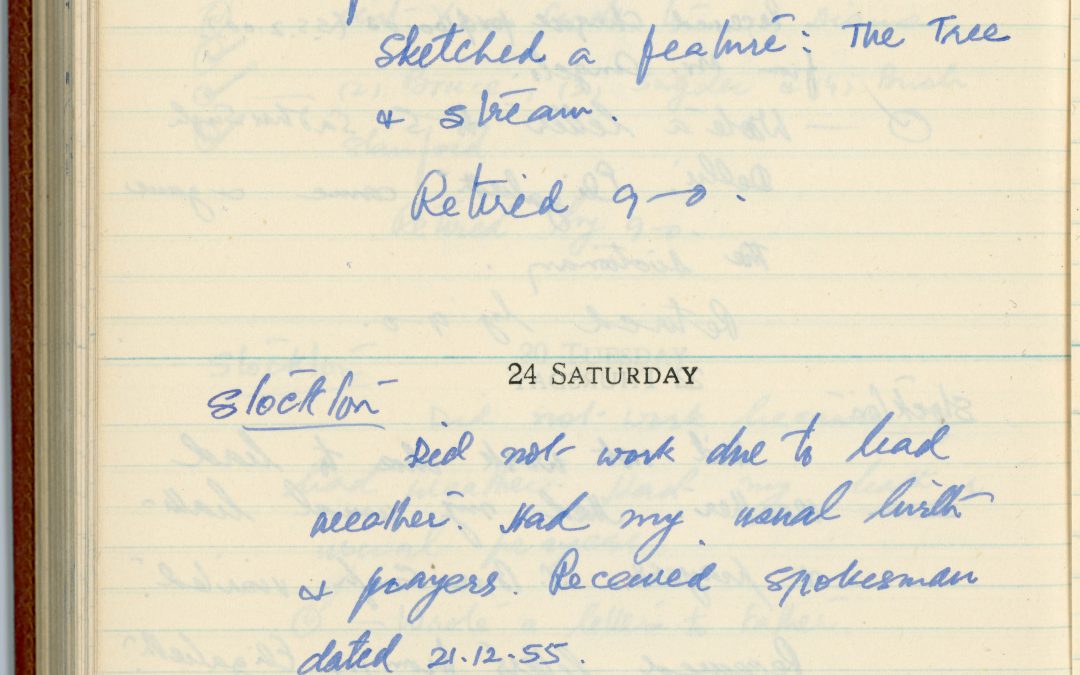 Sketched a feature: The Tree
& stream.
Retired 9-0.
24 SATURDAY
Stockton
Did not work due to bad
weather. Had my usual bath
& prayers. Received Spokesman
dated 21.12.55.